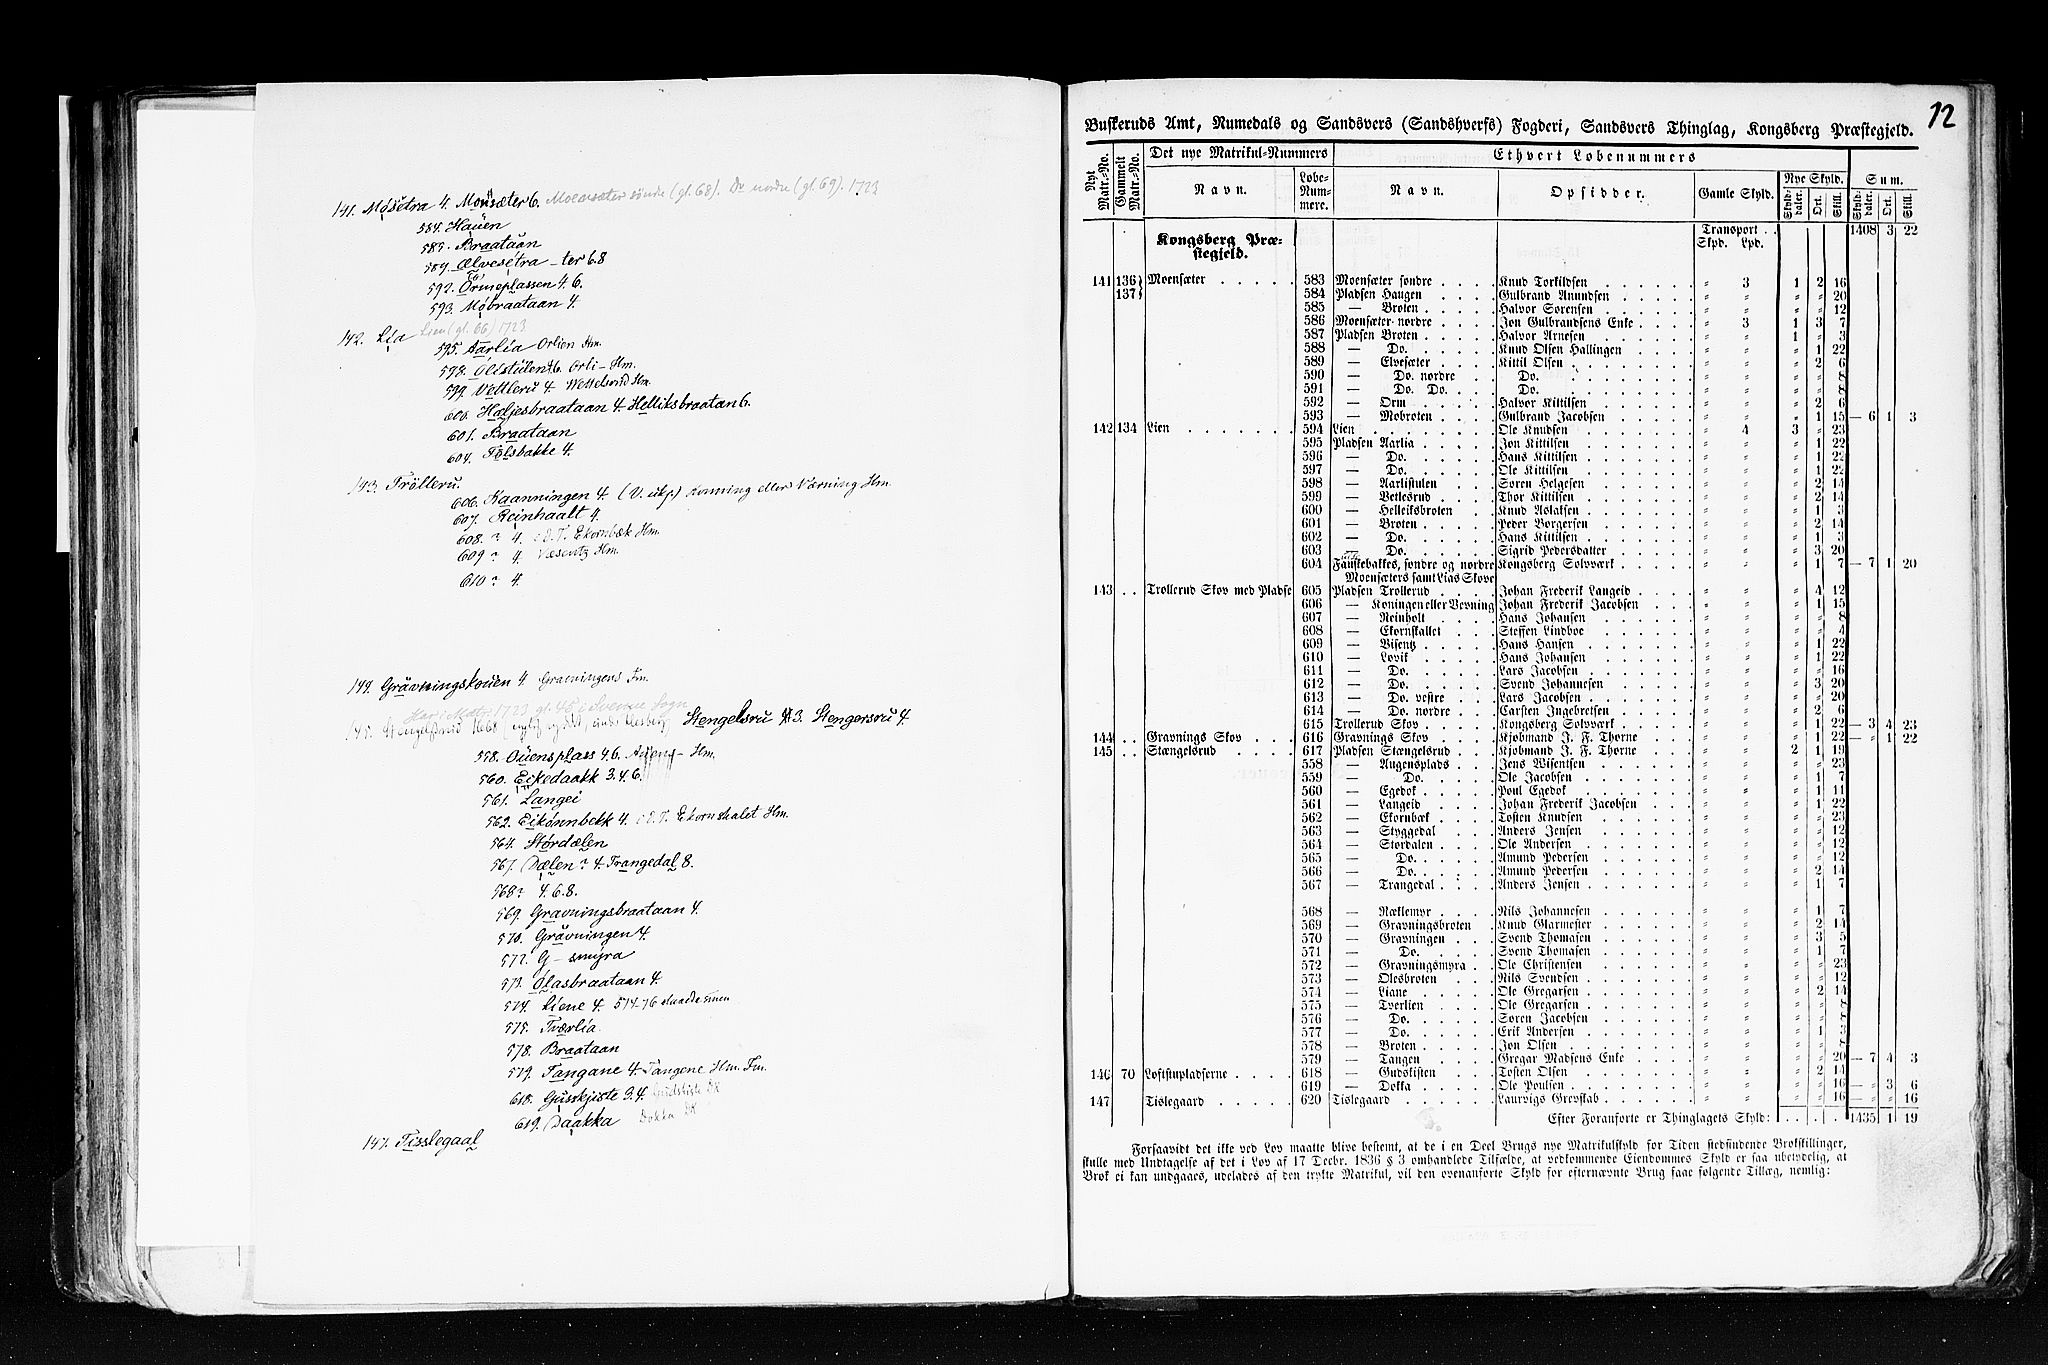 141. Møsetra 4. Monsæter 6. Moensæter søndre (gl. 68). Do nordre (gl. 69). 1723
584. Hauen
585. Braataan
589. Ælvesetra -ter 6.8
592. Ormeplassen 4.6.
593. Mobraataan 4.
142. Lia Lien (gl. 66) 1723
595. Aarlia Orlien Hm.
598. Olistulen 6. Orli- Hm.
599. Vettleru 4 Wettelsrud Hm.
600. Heljesbraataan 4. Helliksbraatan 6.
601. Braataan
604. Fólsbakke 4.
143. Trólleru.
606. Kaanningen 4. (V. ukj.) Konning eller Værning Hm.
607. Reinhaalt 4.
608. ? 4. Ekornbæk Hm.
609 ? 4. Væsentz Hm.
610 ? 4.
144. Grävningskouen 4. Gravningens Fm.
1723 gl. 45 i Svenne Sogn
145. Stengelsrud 1668 Stengelsru 3. Stengersru 4.
558. Ouensplass 4.6. Hm.
560. Eekedaakk 3.4.6.
561. Langei
562. Eikónnbekk 4. Ekornskalet Hm.
564. Stórdælen
567. Dælen ? 4. Trangedal 8.
568 ? 4.6.8.
569. Gravningsbraataan 4.
570. Grävningen 4.
572. G- smyra
573. Olasbraataan 4.
574. Liene 4. 574-76
575. Tværlia
578. Braataan
579. Tangane 4. Tangene Hm. Fm.
618. Gusskjiste 3.4. Gudskiste DK
619. Daakka Dokka DK
147. Tisslegaal
12
Buskeruds Amt, Numedals og Sandsvers (Sandshverfs) Fogderi, Sandsvers Thinglag, Kongsberg Præstegjeld.
Nyt Matr.-No. Gammelt Matr.-No. Det nye Matrikul-Nummers Navn. Ethvert Løbenummers Løbe-Nummere. Navn. Opsidder. Gamle Skyld. Nye Skyld. Skylddaler. Ort. Skill. Sum. Skylddaler. Ort. Skill.
Kongsberg Præstegjeld. Transport . . 1408 3 22
Skpd. Lpd.
141 136 Moensæter . . . . . 583 Moensæter søndre . . . . Knud Torkildsen . . . . . . " 3 1 2 16
137 584 Pladsen Haugen . . . . Gulbrand Anundsen . . . . . " " " " 20
585 — Broten . . . . Halvor Sørensen . . . . . . " " " " 12
586 Moensæter nordre . . . . Jon Gulbrandsens Enke . . . . " 3 1 3 7
587 Pladsen Broten . . . . . Halvor Arnesen . . . . . . " " 1 " 3
588 — Do. . . . . . Knud Olsen Hallingen . . . . " " " 1 22
589 — Elvesæter . . . . Kittil Olsen . . . . . . . " " " 2 6
590 — Do. nordre . . Do. . . . . . . . " " " " 8
591 — Do. Do. . . . Do. . . . . . . . " " " " 8
592 — Orm . . . . . Halvor Kittilsen . . . . . . " " " 2 6
593 — Mobroten . . . . Gulbrand Jacobsen . . . . . " " " 1 15 — 6 1 3
142 134 Lien . . . . . . . 594 Lien . . . . . . . . Ole Knudsen . . . . . . . " 4 3 " 23
595 Pladsen Aarlia . . . . . Jon Kittilsen . . . . . . . " " " 1 22
596 — Do. . . . . . Hans Kittilsen . . . . . . " " " 1 22
597 — Do. . . . . . Ole Kittilsen . . . . . . . " " " 1 22
598 — Aarlistulen . . . Søren Helgesen . . . . . . " " " 2 14
599 — Vetlesrud . . . . Thor Kittilsen . . . . . . " " " 2 14
600 — Helleiksbroten . . Knud Aslaksen . . . . . . " " " 1 3
601 — Broten . . . . . Peder Børgersen . . . . . . " " " 2 14
602 — Do. . . . . . Hans Kittilsen . . . . . . " " " 1 3
603 — Do. . . . . . Sigrid Pedersdatter . . . . . " " " 3 20
604 Fauskebakkes, søndre og nordre Moensæters samt Lias Skove Kongsberg Sølvværk . . . . . " " " 1 7 — 7 1 20
143 . . Trollerud Skov med Pladse 605 Pladsen Trollerud . . . . Johan Frederik Langeid . . . . " " " 4 12
606 — Koningen eller Vevning Johan Frederik Jacobsen . . . " " " 1 15
607 — Reinholt . . . . Hans Johansen . . . . . . " " " " 8
608 — Ekornskallet . . . Steffen Lindboe . . . . . . " " " " 4
609 — Visentz . . . . . Hans Hansen . . . . . . . " " " 1 22
610 — Lovik . . . . . Hans Johansen . . . . . . " " " 1 22
611 — Do. . . . . . Lars Jacobsen . . . . . . . " " " " 16
612 — Do. . . . . . Svend Johannesen . . . . . " " " 3 20
613 — Do. vestre . . . Lars Jacobsen . . . . . . . " " " " 20
614 — Do. nordre . . . Carsten Ingebretsen . . . . . " " " 2 6
615 Trollerud Skov . . . . . Kongsberg Sølvværk . . . . . " " " 1 22 — 3 4 23
144 . . Gravnings Skov . . . . 616 Gravnings Skov . . . . . Kjøbmand J. F. Thorne . . . . " " " 1 22 — " 1 22
145 . . Stængelsrud . . . . . 617 Pladsen Stængelsrud . . . Kjøbmand J. F. Thorne . . . . " " 2 1 19
558 — Augensplads . . . Jens Wisentsen . . . . . . " " " " 23
559 — Do. . . . . . Ole Jacobsen . . . . . . . " " " 1 7
560 — Egedok . . . . . Poul Egedok . . . . . . . " " " 1 11
561 — Langeid . . . . Johan Frederik Jacobsen . . . " " " 1 22
562 — Ekornbæk . . . . Tosten Knudsen . . . . . . " " " " 23
563 — Styggedal . . . . Anders Jensen . . . . . . . " " " " 12
564 — Stordalen . . . . Ole Andersen . . . . . . . " " " " 12
565 — Do. . . . . . Amund Pedersen . . . . . . " " " " 12
566 — Do. . . . . . Amund Pedersen . . . . . . " " " 2 14
567 — Trangedal . . . . Anders Jensen . . . . . . . " " " 1 7
568 — Næklemyr . . . . Nils Johannesen . . . . . . " " " 1 7
569 — Gravningsbroten Knud Glarmester . . . . . . " " " 2 14
570 — Gravningen . . . Svend Thomasen . . . . . . " " " 3 5
571 — Do. . . . . . Svend Thomasen . . . . . . " " " 1 7
572 — Gravningsmyra . . Ole Christensen . . . . . . " " " " 23
573 — Olesbroten . . . Nils Svendsen . . . . . . . " " " " 12
574 — Liane . . . . . Ole Gregarsen . . . . . . . " " " 2 14
575 — Tverlien . . . . Ole Gregarsen . . . . . . . " " " " 7
576 — Do. . . . . . Søren Jacobsen . . . . . . " " " " 7
577 — Do. . . . . . Erik Andersen . . . . . . . " " " 1 3
578 — Broten . . . . . Jon Olsen . . . . . . . . " " " " 7
579 — Tangen . . . . . Gregar Madsens Enke . . . . " " " " 20 — 7 4 3
146 70 Loftstupladserne . . . . 618 — Gudskisten . . . Tosten Olsen . . . . . . . " " " 2 14
619 — Dokka . . . . . Ole Poulsen . . . . . . . " " " " 16 — " 3 6
147 Tislegaard . . . . . 620 Tislegaard . . . . . . Laurvigs Grevskab . . . . . " " " " 16 — " " 16
Efter Foranførte er Thinglagets Skyld: . . . . . 1435 1 19
Forsaavidt det ikke ved Lov maatte blive bestemt, at de i en Deel Brugs nye Matrikulskyld for Tiden stedfindende Brøkskillinger,
skulle med Undtagelse af det i Lov af 17 Decbr. 1836 § 3 omhandlede Tilfælde, at vedkommende Eiendommes Skyld er saa ubetydelig, at
Brøk ei kan undgaaes, udelades af den trykte Matrikul, vil den ovenanførte Skyld for efternævnte Brug faae følgende Tillæg, nemlig: